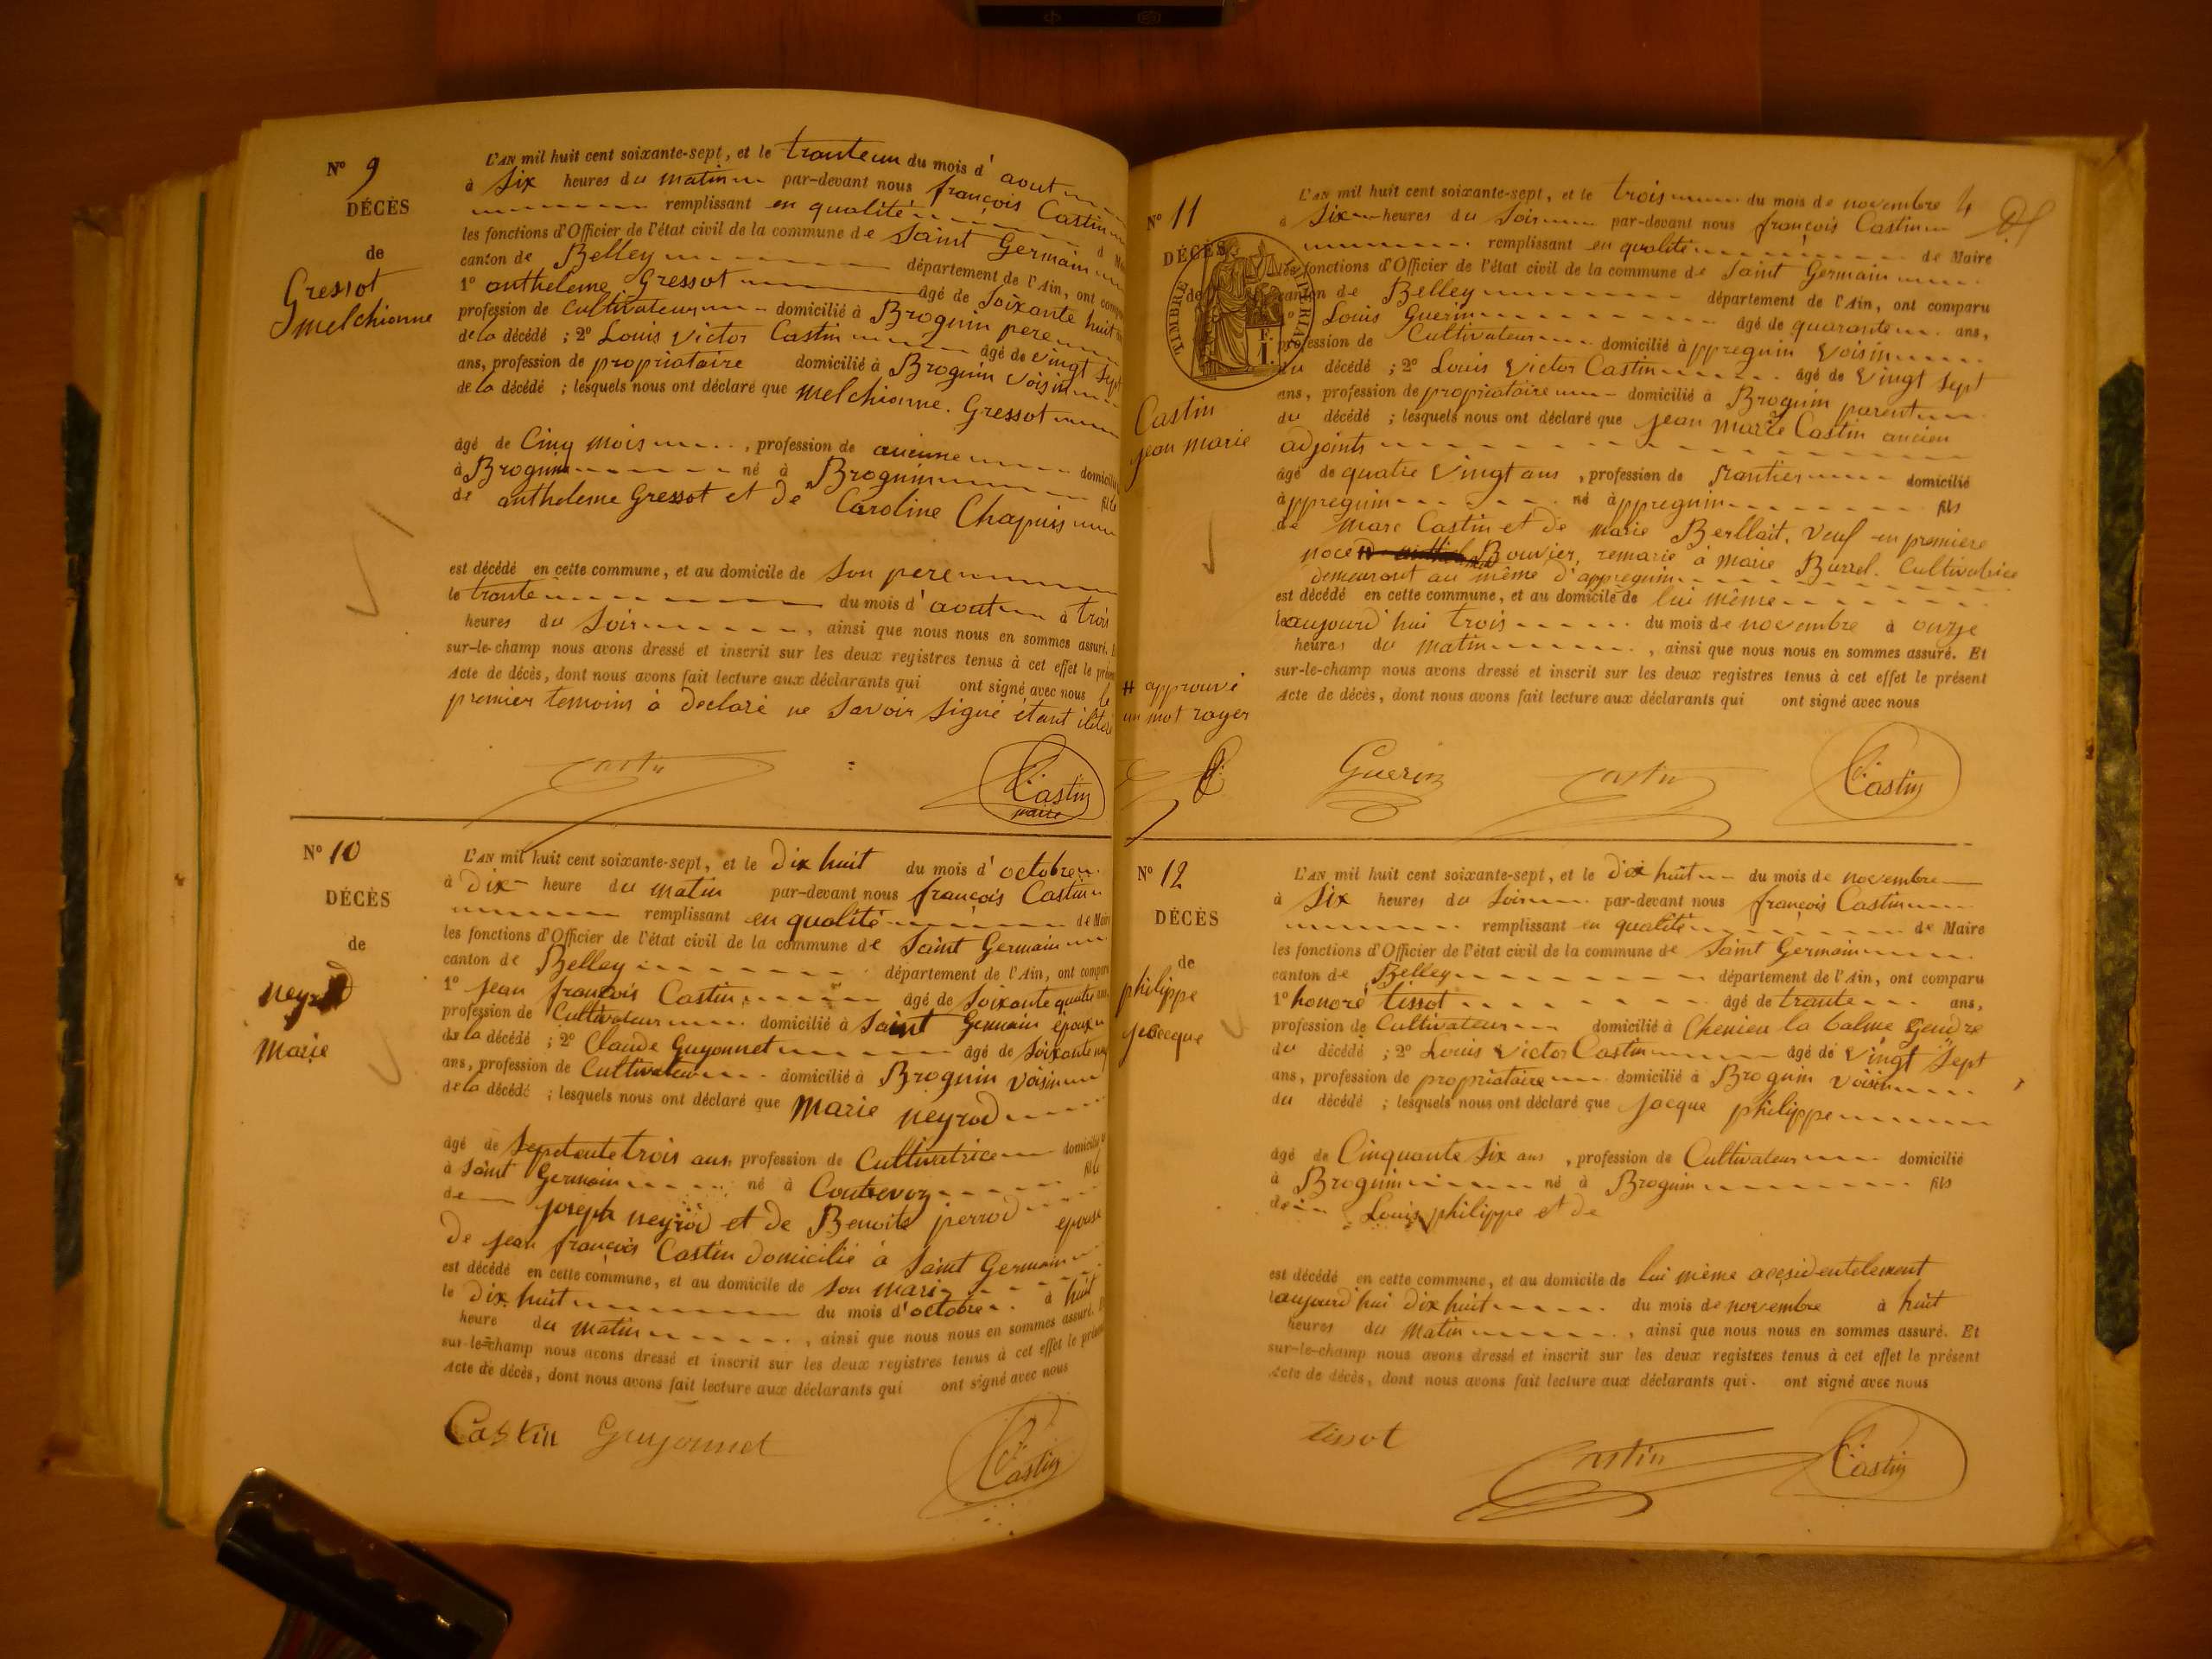 N° 9
DÉCÈS
de
Gressot
melchionne
L'AN mil huit cent soixante-sept, et le tranteun du mois d'aout
à Six heures du matin par-devant nous françois Castin
remplissant en qualité d
les fonctions d'Officier de l'état civil de la commune de Saint Germain
canton de Belley département de l'Ain, ont comparu
1° antheleme Gressot âgé de Soixante huit
profession de Cultivateur domicilié à Brognin pere
de la décédé ; 2° Louis victor Castin âgé de vingt Sept
ans, profession de propriataire domicilié à Brognin voisin
de la décédé ; lesquels nous ont déclaré que melchionne. Gressot
âgé de Cinq mois , profession de aucunne domicilié
à Brognin né à Brognin fille
de antheleme Gressot et de Caroline Chapuis
est décédé en cette commune, et au domicile de Son pere
le trante du mois d'aout à trois
heures du Soir , ainsi que nous nous en sommes assuré. E
sur-le-champ nous avons dressé et inscrit sur les deux registres tenus à cet effet le présent
Acte de décès, dont nous avons fait lecture aux déclarants qui ont signé avec nous le
premier temoins à declaré ne Savoir Signé étant ilétéré
Castin
Castin
maire
N° 10
DÉCÈS
de
neyrod
Marie
L'AN mil huit cent soixante-sept, et le Dix huit du mois d'octobre
à Dix heure du matin par-devant nous françois Castin
remplissant en qualité de Maire
les fonctions d'Officier de l'état civil de la commune de Saint Germain
canton de Belley département de l'Ain, ont comparu
1° jean françois Castin âgé de Soixante quatre ans,
profession de Cultivateur domicilié à Saint Germain époux
de la décédé ; 2° Claude Guyonnet âgé de Soixante
ans, profession de Cultivateur domicilié à Brognin voisin
de la décédé ; lesquels nous ont déclaré que Marie neyrod
âgé de Septente trois ans, profession de Cultivatrice domicilié
à Saint Germain né à Contrevoz fille
de joseph neyrod et de Benoite perrod epouse
De jean françois Castin domicilié à Saint Germain
est décédé en cette commune, et au domicile de Son mari
le Dix huit du mois d'octobre à huit
heure du matin , ainsi que nous nous en sommes assuré.
sur-le-champ nous avons dressé et inscrit sur les deux registres tenus à cet effet le présent
Acte de décès, dont nous avons fait lecture aux déclarants qui ont signé avec nous
Castin Guyonnet Castin
N° 11
DÉCÈS
de
TIMBRE IMPERIAL
Castin
jean marie
4
L'AN mil huit cent soixante-sept, et le trois du mois de novembre
à Six heures du Soir par-devant nous françois Castin
remplissant en qualité de Maire
les fonctions d'Officier de l'état civil de la commune de Saint Germain
canton de Belley département de l'Ain, ont comparu
1° Louis Guerin âgé de quarante ans,
profession de Cultivateur domicilié à ppregnin voisin
du décédé ; 2° Louis victor Castin âgé de vingt Sept
ans, profession de propriataire domicilié à Brognin parent
du décédé ; lesquels nous ont déclaré que jean marie Castin ancien
adjoints
âgé de quatre vingt ans , profession de Rantier domicilié
à ppregnin né à ppregnin fils
de Marc Castin et de marie Berllait, veuf en premiere
noce # Bouvier, remarié à marie Burrel. Cultivatrice
demeurant au même d'appregnin
est décédé en cette commune, et au domicile de lui même
le aujourd'hui trois du mois de novembre à onzze
heures du matin , ainsi que nous nous en sommes assuré. Et
sur-le-champ nous avons dressé et inscrit sur les deux registres tenus à cet effet le présent
Acte de décès, dont nous avons fait lecture aux déclarants qui ont signé avec nous
# approuvé
un mot rayer
Guerin Castin Castin
N° 12
DÉCÈS
de
philippe
jacque
L'AN mil huit cent soixante-sept, et le Dix huit du mois de novembre
à Six heures du Soir par-devant nous françois Castin
remplissant en qualité de Maire
les fonctions d'Officier de l'état civil de la commune de Saint Germain
canton de Belley département de l'Ain, ont comparu
1° honoré tissot âgé de trante ans,
profession de Cultivateur domicilié à Chemieu la balme Gendre
du décédé ; 2° Louis victor Castin âgé de vingt Sept
ans, profession de propriataire domicilié à Brognin voisin
du décédé ; lesquels nous ont déclaré que jacque philippe
âgé de Cinquante Six ans , profession de Cultivateur domicilié
à Brognin né à Brognin fils
de Louis philippe et de
est décédé en cette commune, et au domicile de lui même accsidentelement
le aujourd'hui Dix huit du mois de novembre à huit
heures du matin , ainsi que nous nous en sommes assuré. Et
sur-le-champ nous avons dressé et inscrit sur les deux registres tenus à cet effet le présent
Acte de décès, dont nous avons fait lecture aux déclarants qui. ont signé avec nous
tissot Castin Castin